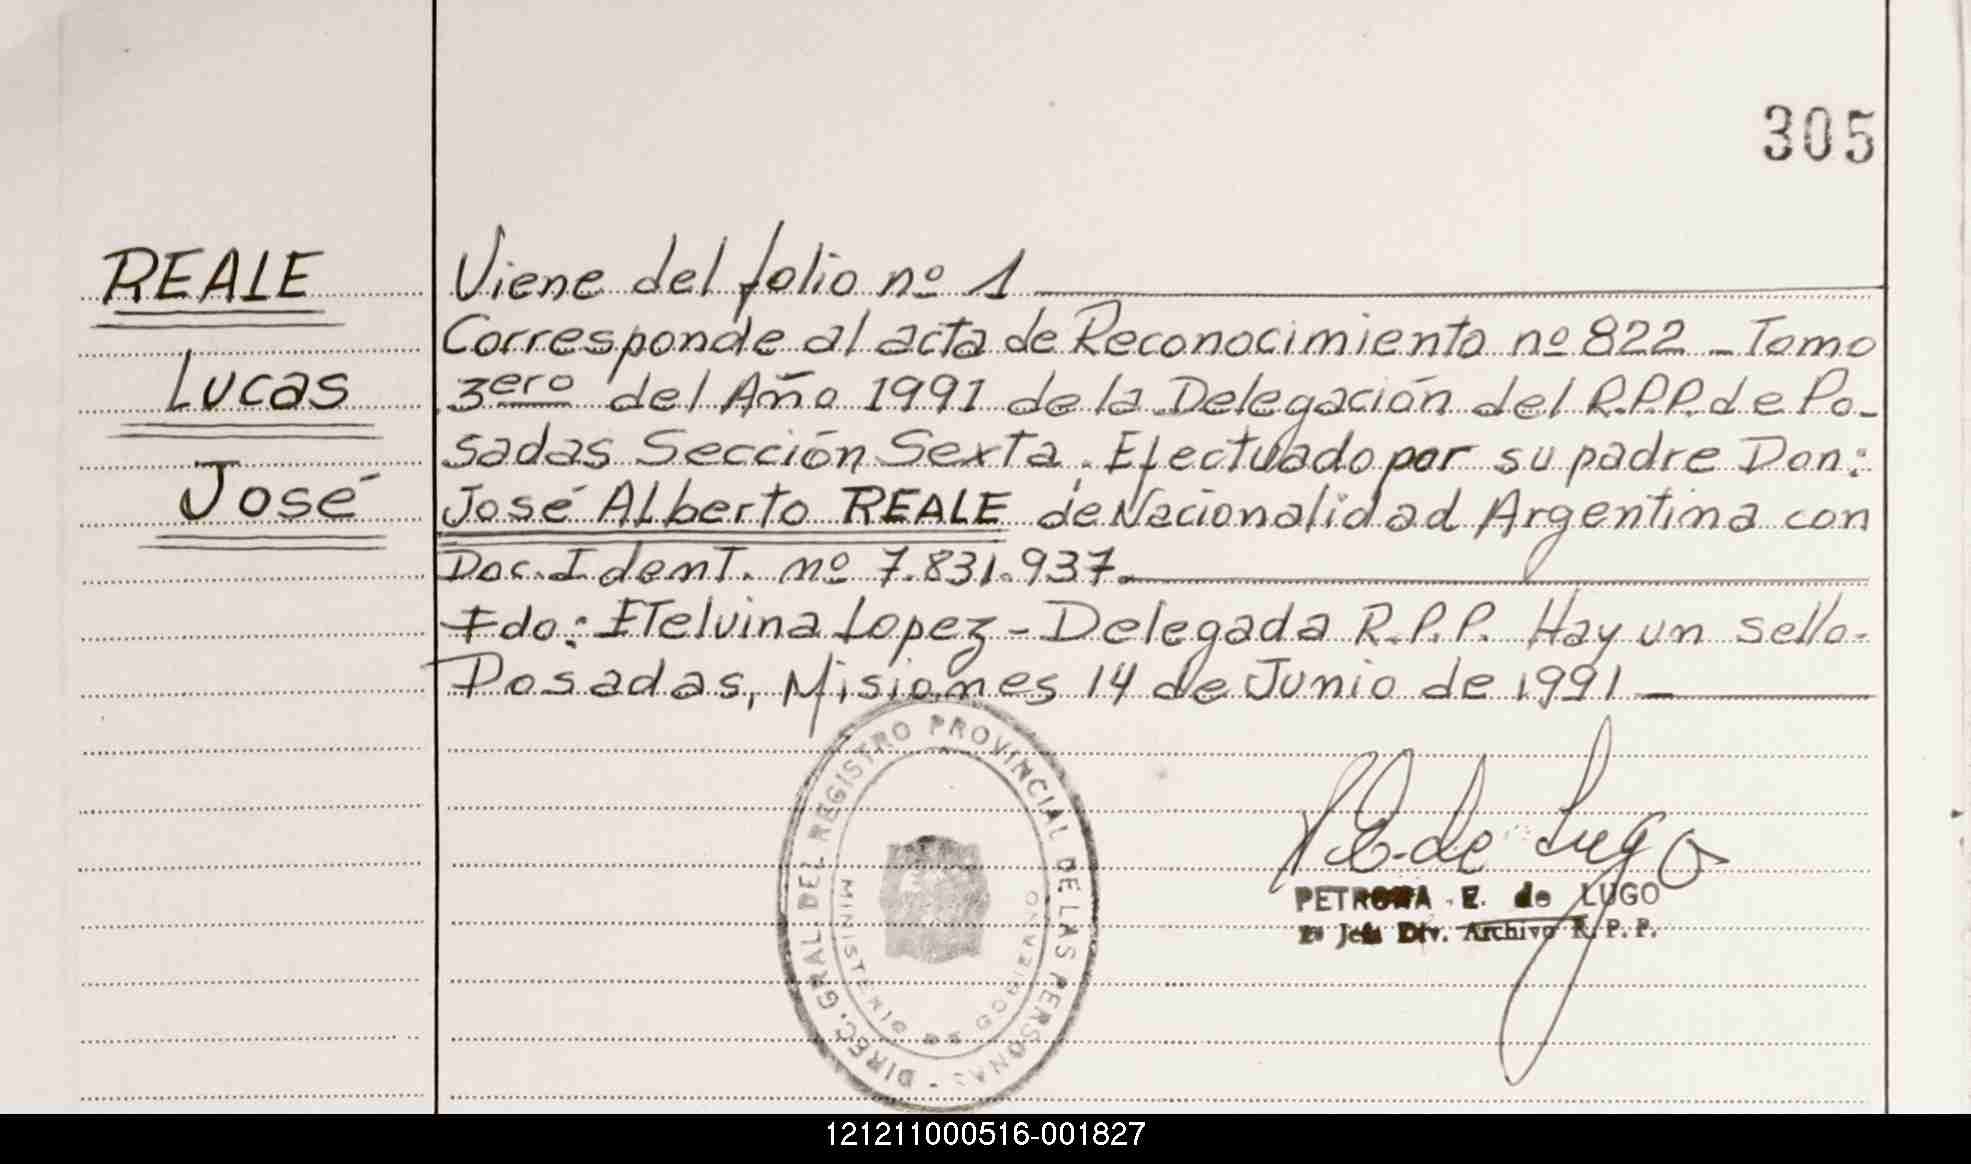 305
REALE
Lucas
José
Viene del folio nº 1
Corresponde al acta de Reconocimiento nº 822 - Tomo
3ero del Año 1991 de la Delegación del R.P.P. de Po-
sadas Sección Sexta. Efectuado por su padre Don:
José Alberto REALE de Nacionalidad Argentina con
Doc. Ident. nº 7.831.937.
Fdo: ETelvina Lopez - Delegada R.P.P. Hay un sello-
Posadas, Misiones 14 de Junio de 1991
DIREC. GRAL DEL REGISTRO PROVINCIAL DE LAS PERSONAS -
MINISTERIO DE GOBIERNO
P E. de Lugo
PETRONA E. de LUGO
Jefe Div. Archivo R. P. P.
121211000516-001827